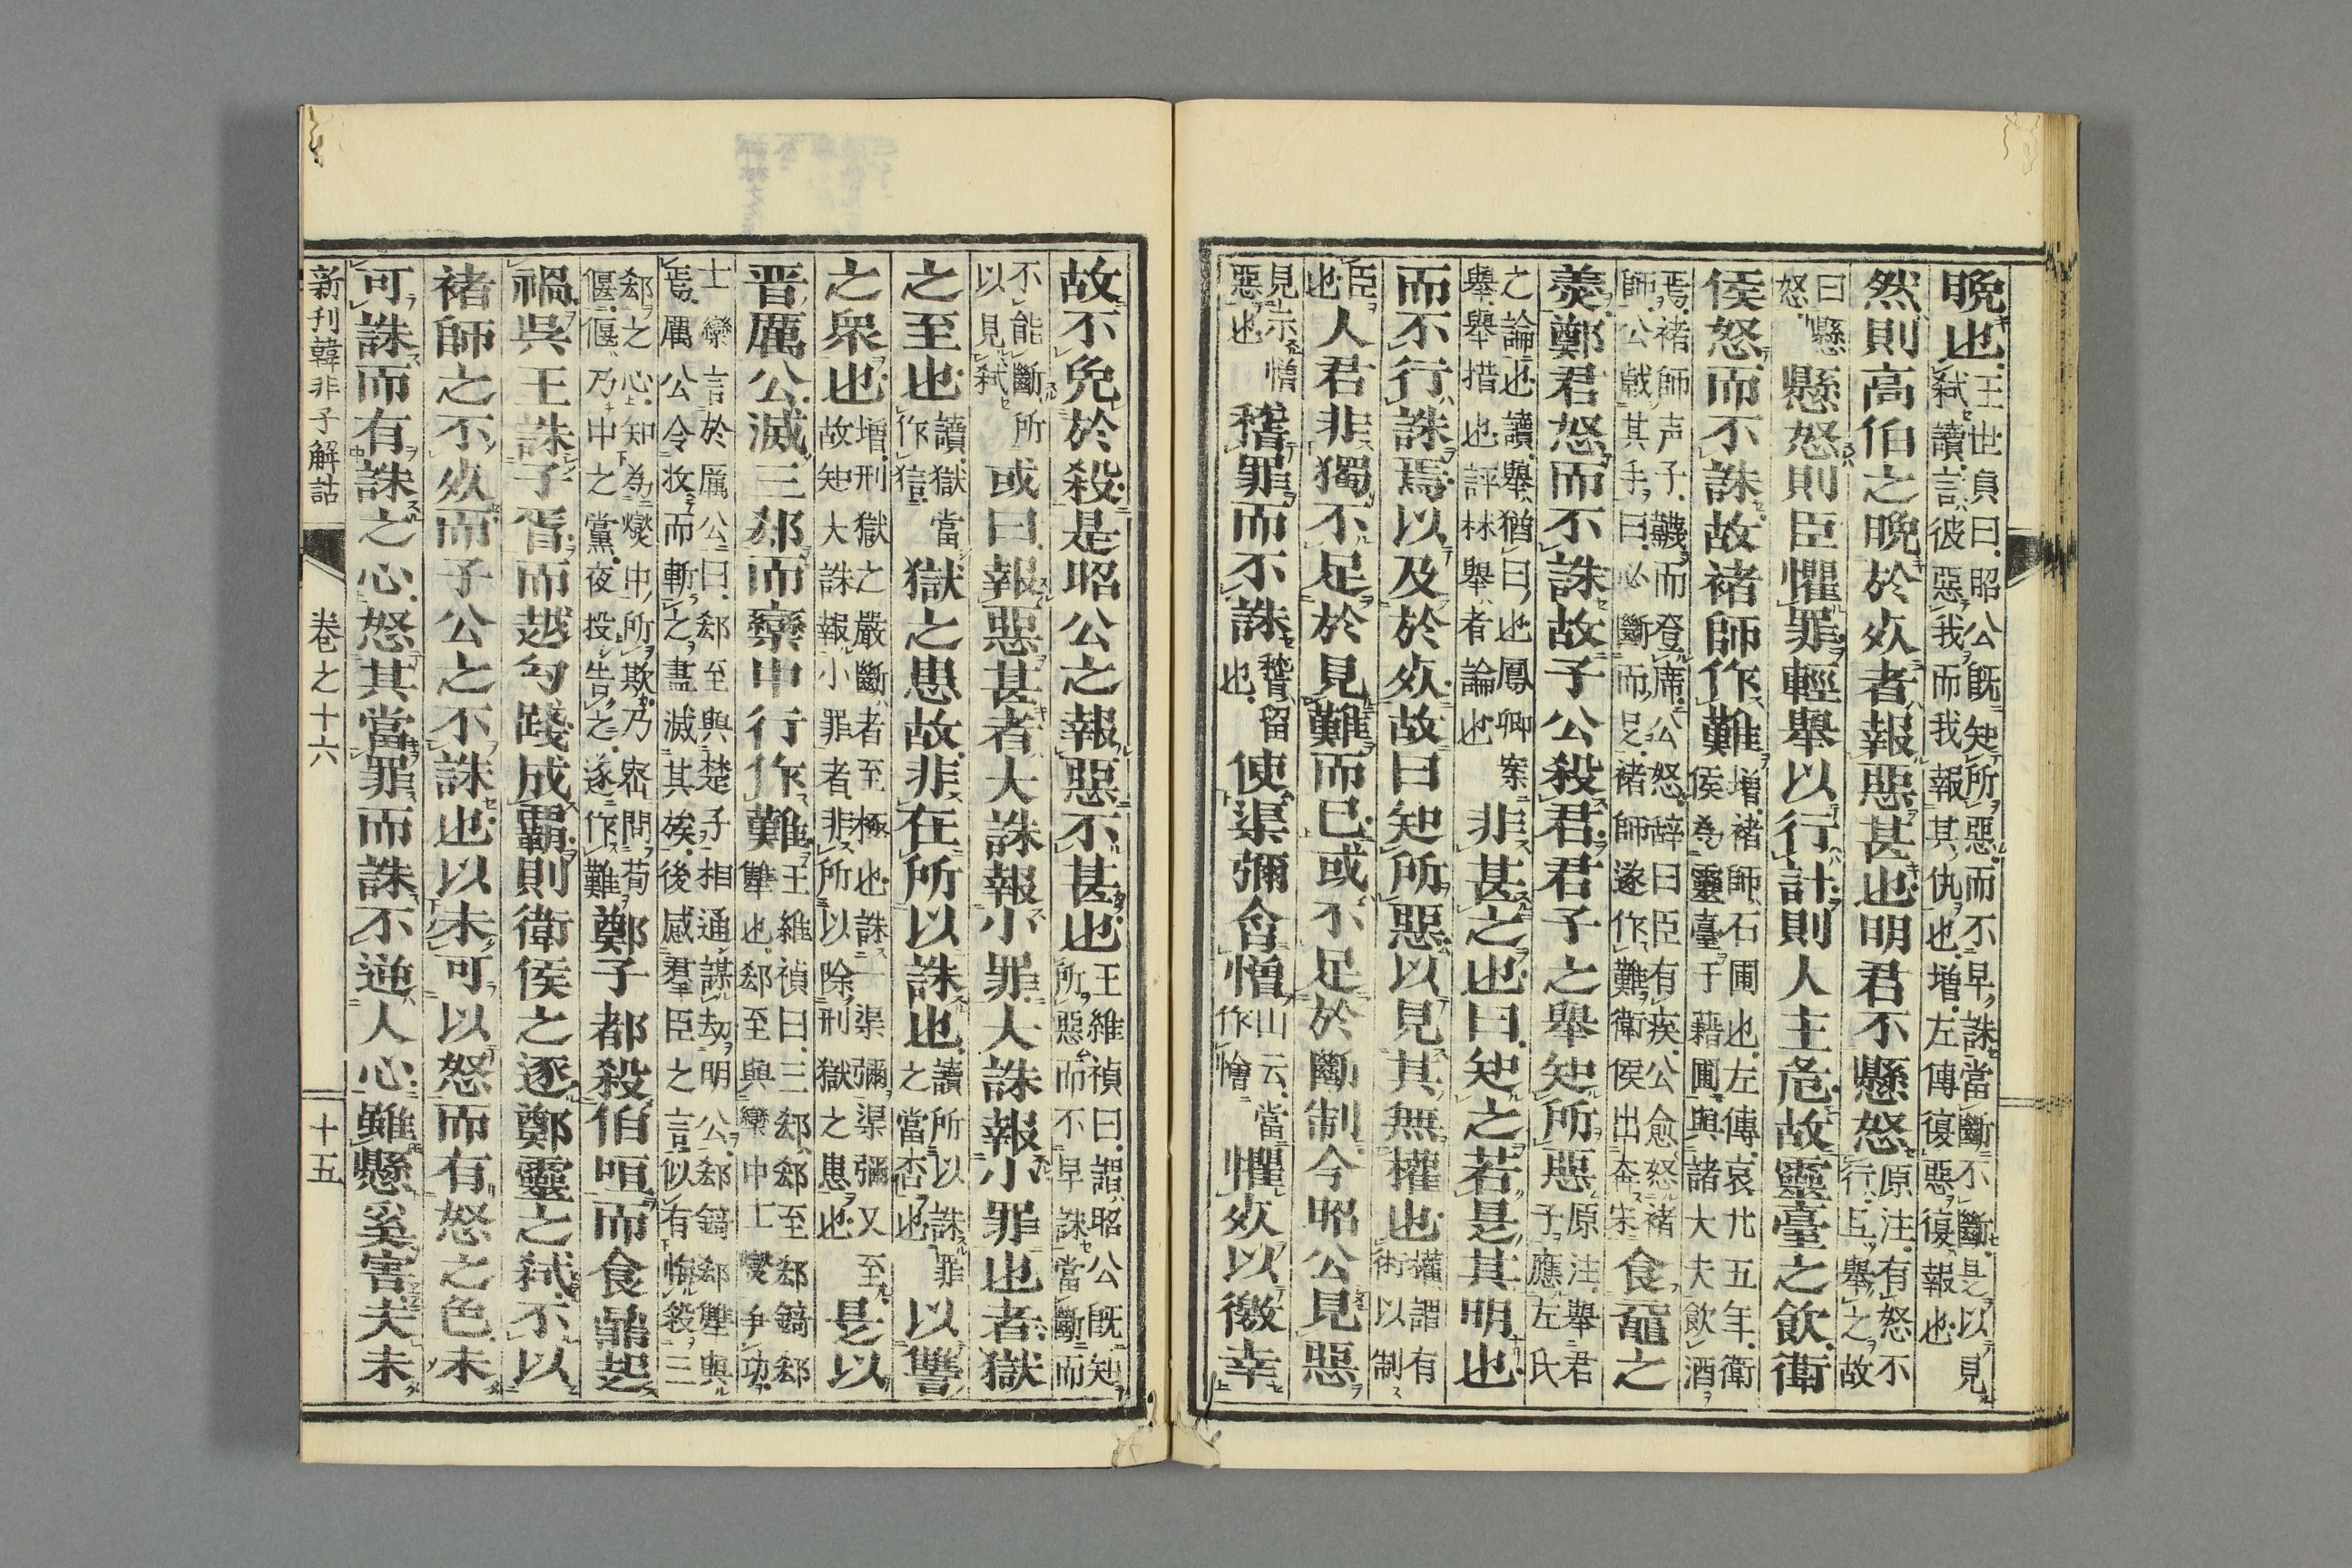 晩也王世貞曰昭公既知所惡而不早誅當斷不斷是以見弑讀言彼惡我而我報其仇也増左傳復惡復報也
然則高伯之晩於死者報惡甚也明君不懸怒原注有怒不行且舉之故
曰懸怒懸怒則臣懼罪輕舉以行計則人主危故靈臺之飲衛
侯怒而不誅故褚師作難増褚師石圃也左傳哀廿五年衛侯為靈臺于藉圃與諸大夫飲酒
焉褚師声子韈而登席公怒辭曰臣有疾公愈怒褚師公戟其手曰必斷而足褚師遂作難衛侯出奔宋食黿之
羮鄭君怒而不誅故子公殺君君子之舉知所惡原注舉君子應左氏
之論也讀舉猶曰也鳳卿案舉舉措也評林舉者論也非甚之也曰知之若是其明也
而不行誅焉以及於死故曰知所惡以見其無權也權謂有術以制
臣也人君非獨不足於見難而已或不足於斷制今昭公見惡
見示憎惡也稽罪而不誅稽留也使渠彌含憎山云當作憎懼死以徼幸
故不免於殺是昭公之報惡不甚也王維禎曰謂昭公既知所惡而不早誅當斷而
不能斷所以見弑或曰報惡甚者大誅報小罪大誅報小罪也者獄
之至也讀獄當作㹞獄之患故非在所以誅也讀所以誅罪之當否也以讐
之衆也増刑獄之嚴斷者至極也誅一渠彌渠彌又至故知大誅報小罪者非所以除刑獄之患也是以
晋厲公滅三郤而欒中行作難王維禎曰三郤郤至郤錡郤犨也郤至與欒中士燮爭功
士欒言於厲公曰郤至與楚子相通謀劫明公郤錡郤犨與焉厲公令收而斬之盡滅其族後感羣臣之言似有悔殺三
郤之心知為燮中所欺乃密問荀偃偃乃中之黨夜投告之遂作難鄭子都殺伯咺而食鼎起
禍呉王誅子胥而越勾踐成覇則衛侯之逐鄭靈之弑不以
褚師之不死而子公之不誅也以未可以怒而有怒之色未
可誅而有誅之心怒其當罪而誅不逆人心雖懸奚害夫未
新刊韓非子解詁　巻之十六　十五